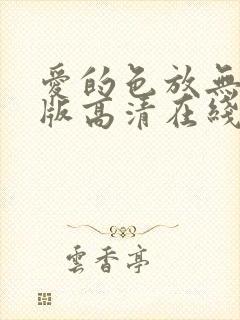 愛的色放無
版高清在綫
雲香亭